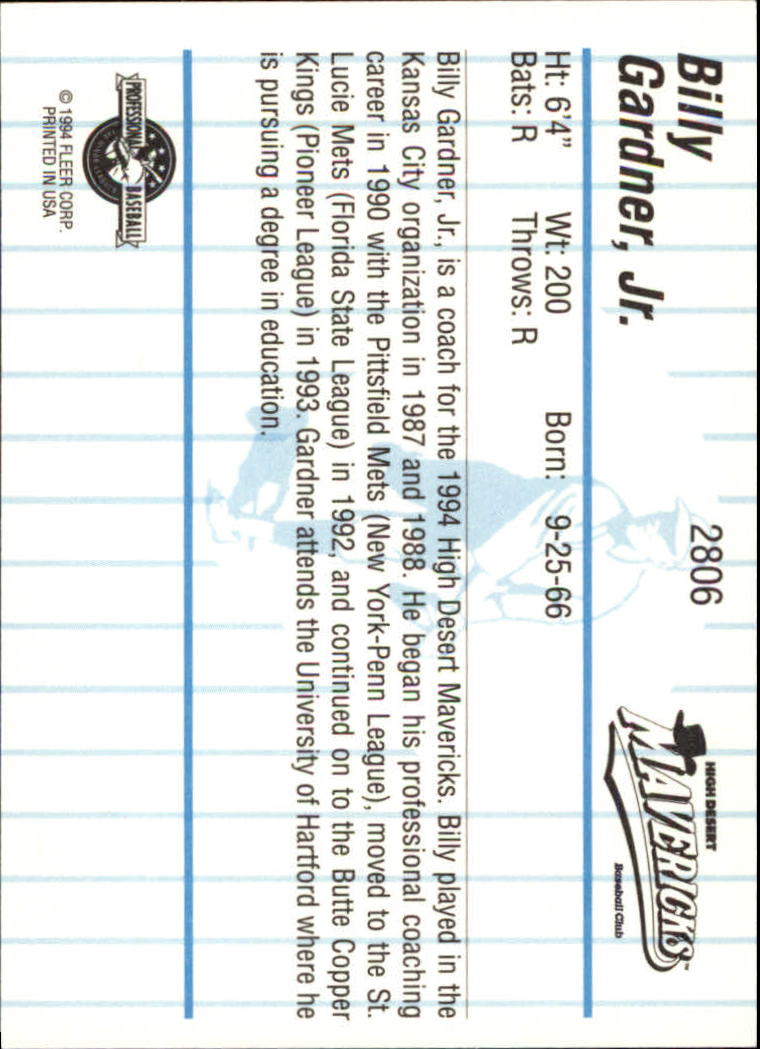 Billy
Gardner, Jr.
2806
HIGH DESERT
MAVERICKS™
Baseball Club
Ht: 6'4" Wt: 200 Born: 9-25-66
Bats: R Throws: R
Billy Gardner, Jr., is a coach for the 1994 High Desert Mavericks. Billy played in the
Kansas City organization in 1987 and 1988. He began his professional coaching
career in 1990 with the Pittsfield Mets (New York-Penn League), moved to the St.
Lucie Mets (Florida State League) in 1992, and continued on to the Butte Copper
Kings (Pioneer League) in 1993. Gardner attends the University of Hartford where he
is pursuing a degree in education.
PROFESSIONAL BASEBALL
© 1994 FLEER CORP.
PRINTED IN USA